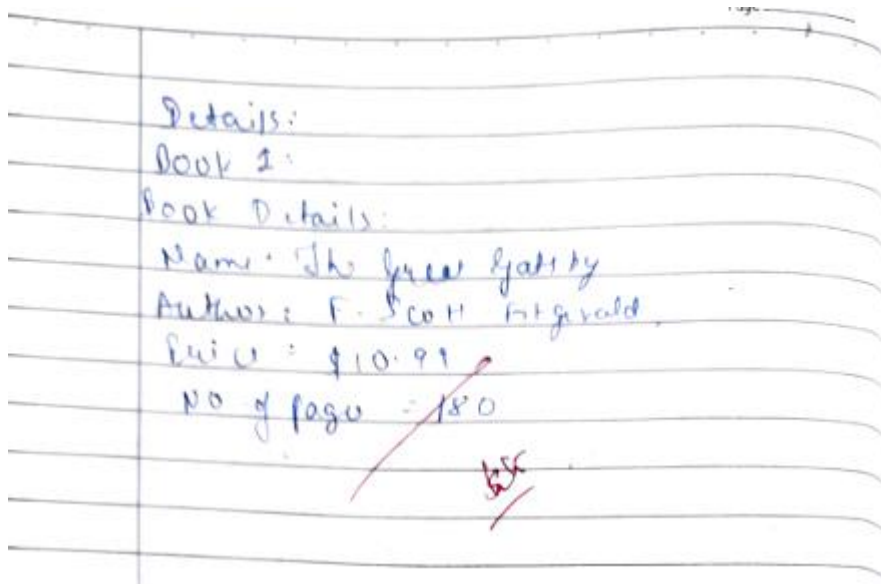 Page
Details:
Book 1:
Book Details:
Name: The Great Gatsby
Author: F. Scott Fitzgerald
Price: $10.99
No of pages = 180